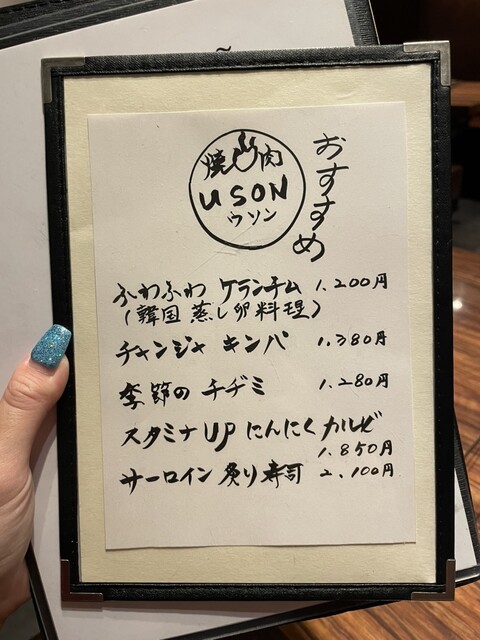 焼肉
USON
ウソン
おすすめ
ふわふわ ケランチム 1,200円
(韓国 蒸し卵料理)
チャンジャ キンパ 1,380円
季節の チヂミ 1,280円
スタミナUP にんにく カルビ
1,850円
サーロイン 炙り寿司 2,100円